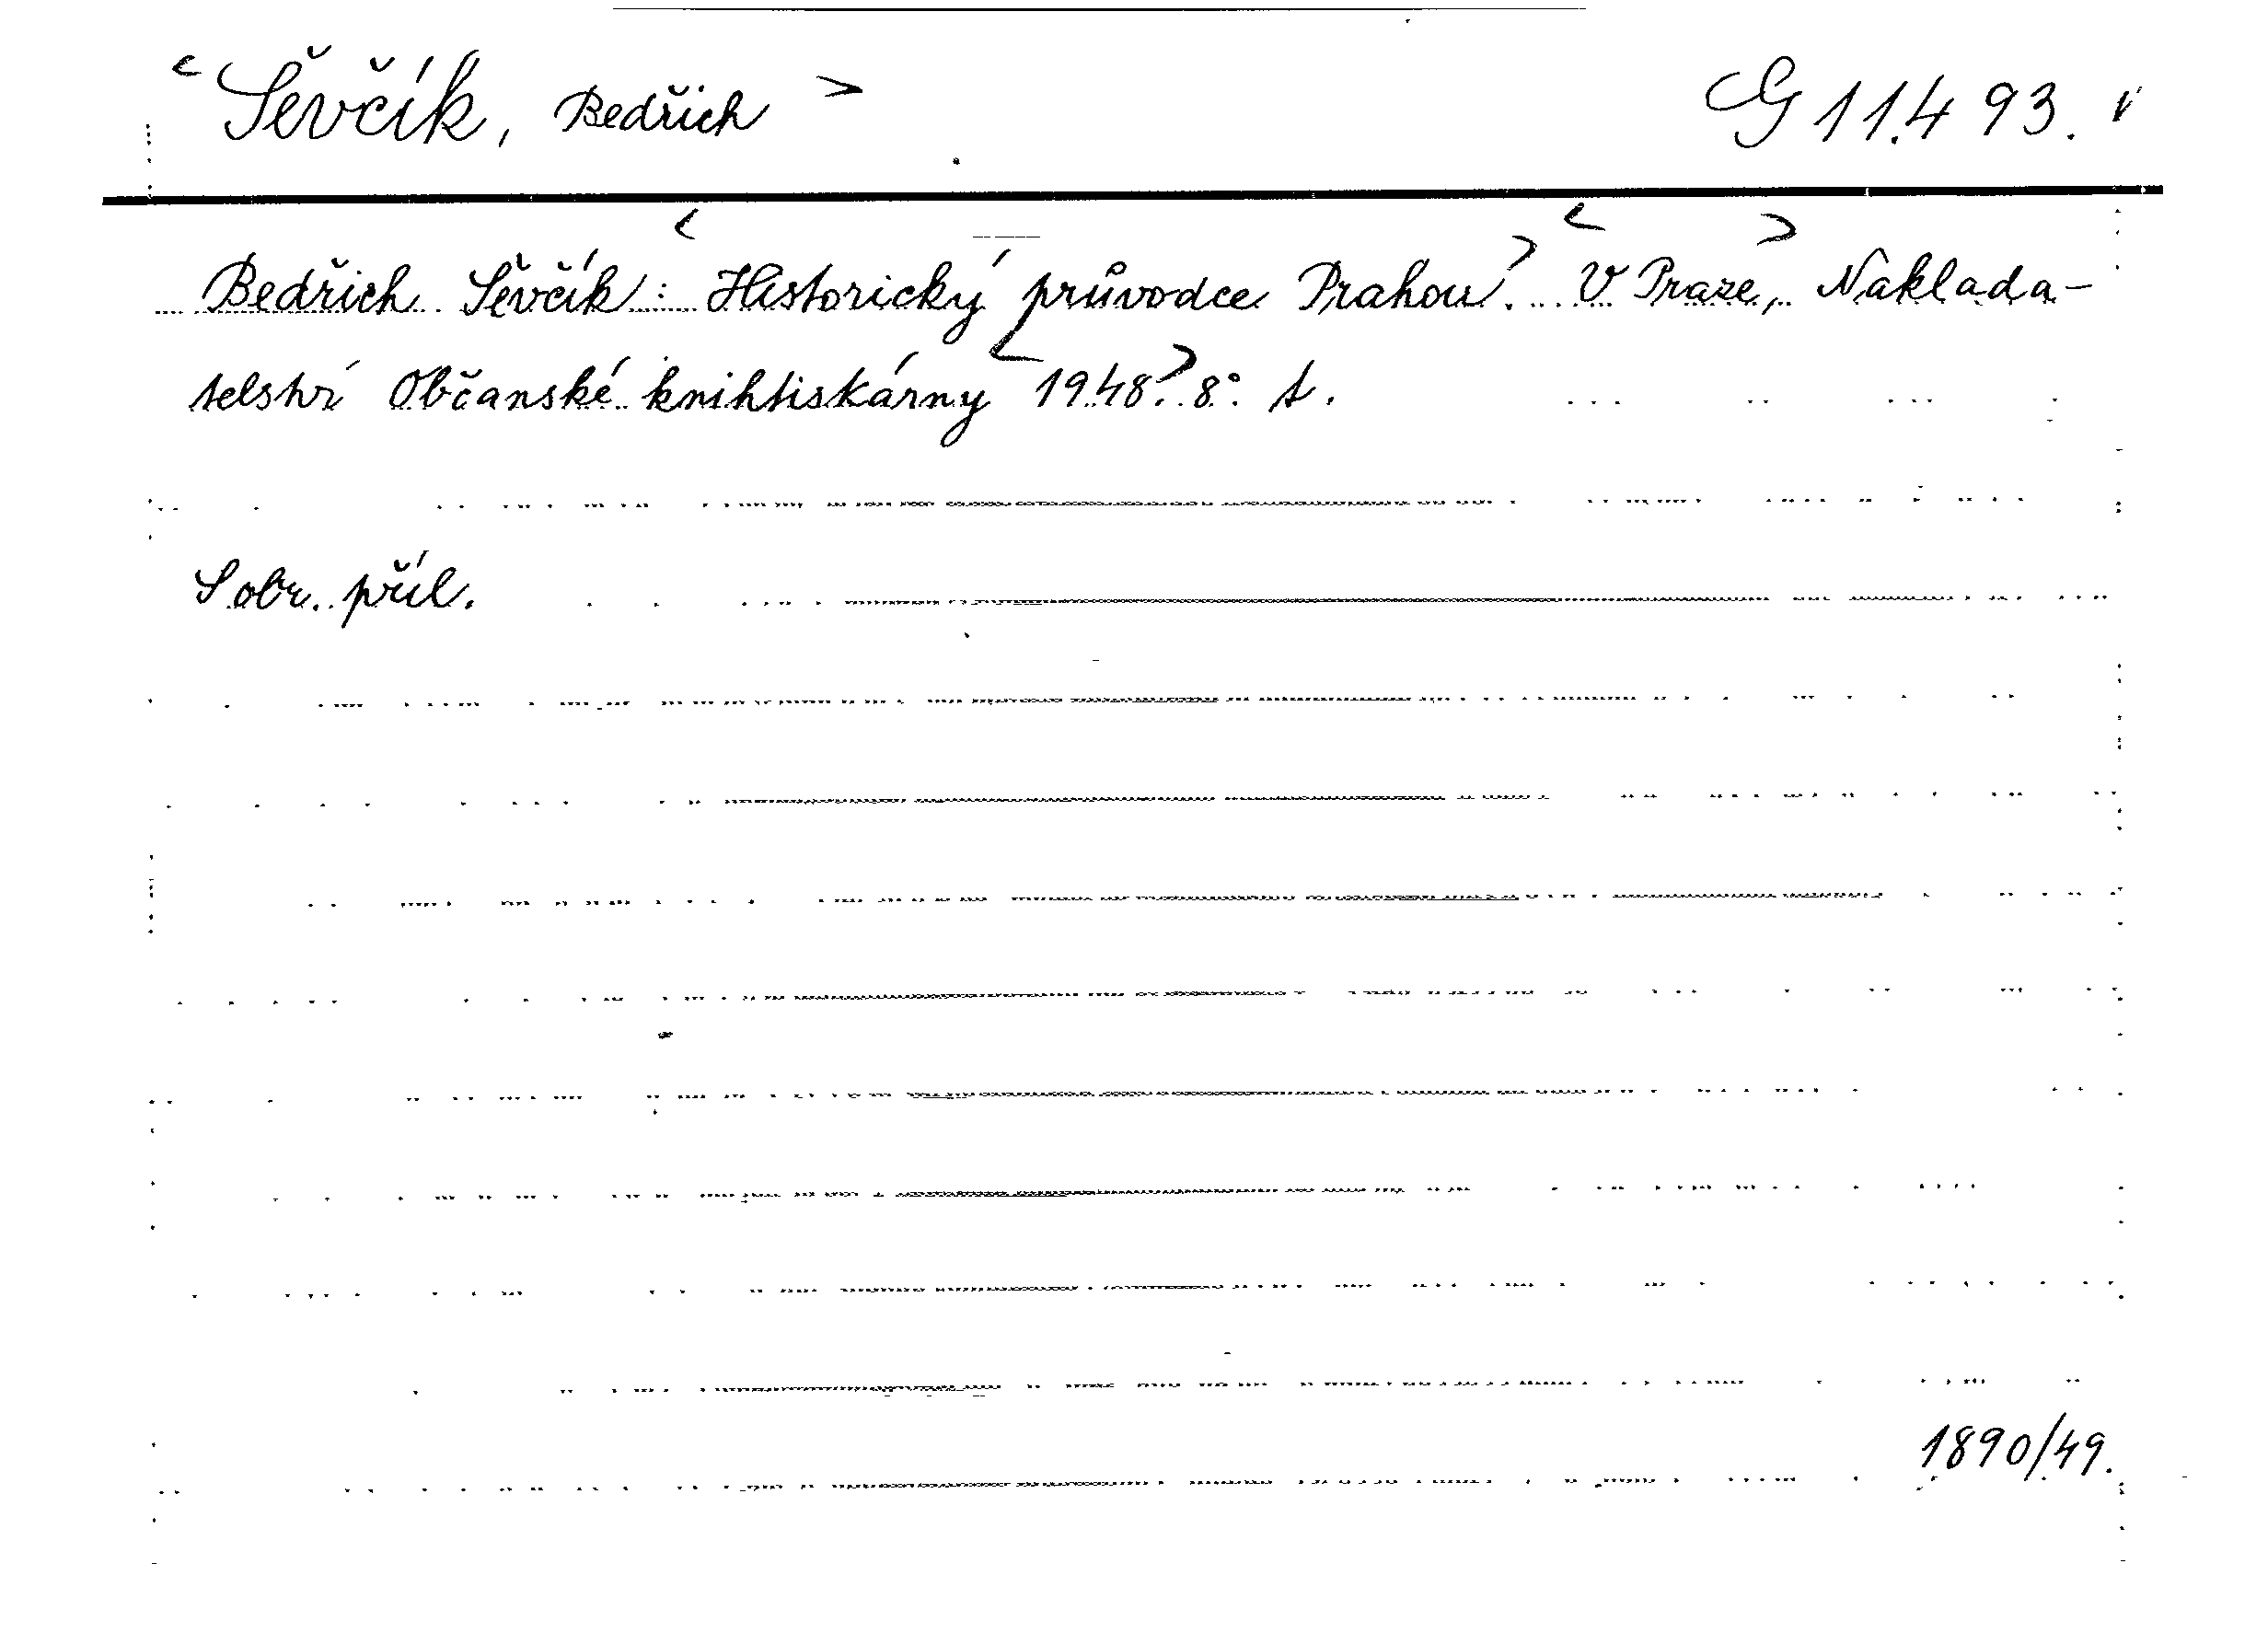 < Ševčík, Bedřich > G 11.493. v
Bedřich Ševčík: < Historický průvodce Prahou. > < V Praze, > Naklada-
telství Občanské knihtiskárny < 1948. > 8°. t.
S obr. příl.
1890/49.